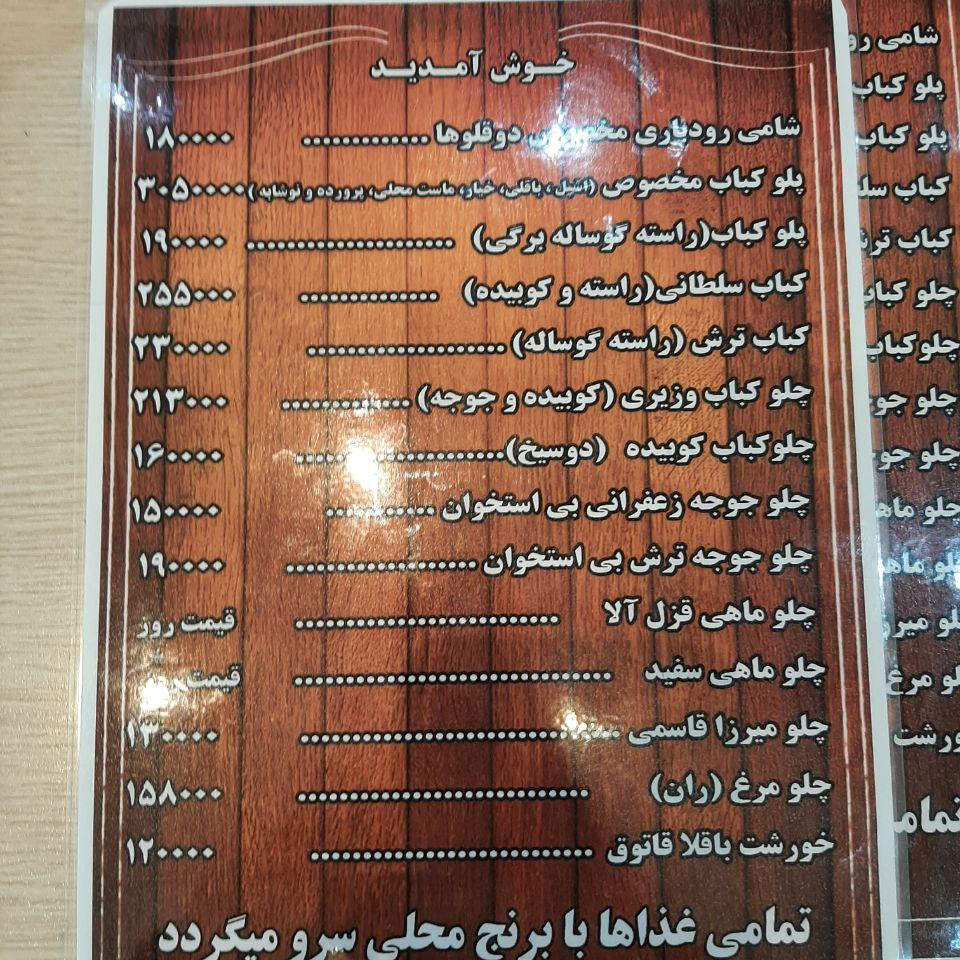 خوش آمدید
شامی رودباری مخصوص دوقلوها ............. ۱۸۰۰۰۰
پلو کباب مخصوص (اشپل ، باقلی، خیار، ماست محلی، پرورده و نوشابه) ۳۰۵۰۰۰۰
پلو کباب(راسته گوساله برگی) ..................... ۱۹۰۰۰۰
کباب سلطانی(راسته و کوبیده) .............. ۲۵۵۰۰۰
کباب ترش (راسته گوساله) .................... ۲۳۰۰۰۰
چلو کباب وزیری (کوبیده و جوجه) ............. ۲۱۳۰۰۰
چلوکباب کوبیده (دوسیخ)..................... ۱۶۰۰۰۰
چلو جوجه زعفرانی بی استخوان ........... ۱۵۰۰۰۰
چلو جوجه ترش بی استخوان .................... ۱۹۰۰۰۰
چلو ماهی قزل آلا ........................... قیمت روز
چلو ماهی سفید ................................ قیمت روز
چلو میرزا قاسمی ................................ ۱۳۰۰۰۰
چلو مرغ (ران) ............................. ۱۵۸۰۰۰
خورشت باقلا قاتوق ............................ ۱۲۰۰۰۰
تمامی غذاها با برنج محلی سرو میگردد
شامی رو
پلو کباب
پلو کباب
کباب سلط
کباب ترش
چلو کباب
چلوکباب
چلو جوجه
چلو جوجه
چلو ماهی
چلو ماهی
چلو میرزا
چلو مرغ
خورشت
تمامی